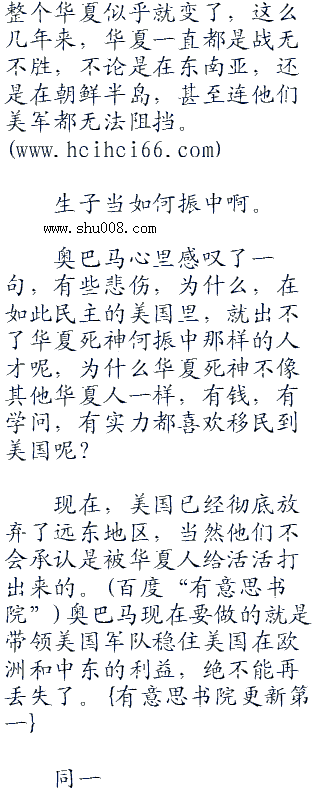 整个华夏似乎就变了，这么
几年来，华夏一直都是战无
不胜，不论是在东南亚，还
是在朝鲜半岛，甚至连他们
美军都无法阻挡。
(www.hcihci66.com)
生子当如何振中啊。
www.shu008.com
奥巴马心里感叹了一
句，有些悲伤，为什么，在
如此民主的美国里，就出不
了华夏死神何振中那样的人
才呢，为什么华夏死神不像
其他华夏人一样，有钱，有
学问，有实力都喜欢移民到
美国呢？
现在，美国已经彻底放
弃了远东地区，当然他们不
会承认是被华夏人给活活打
出来的。(百度“有意思书
院”)奥巴马现在要做的就是
带领美国军队稳住美国在欧
洲和中东的利益，绝不能再
丢失了。{有意思书院更新第
一}
同一